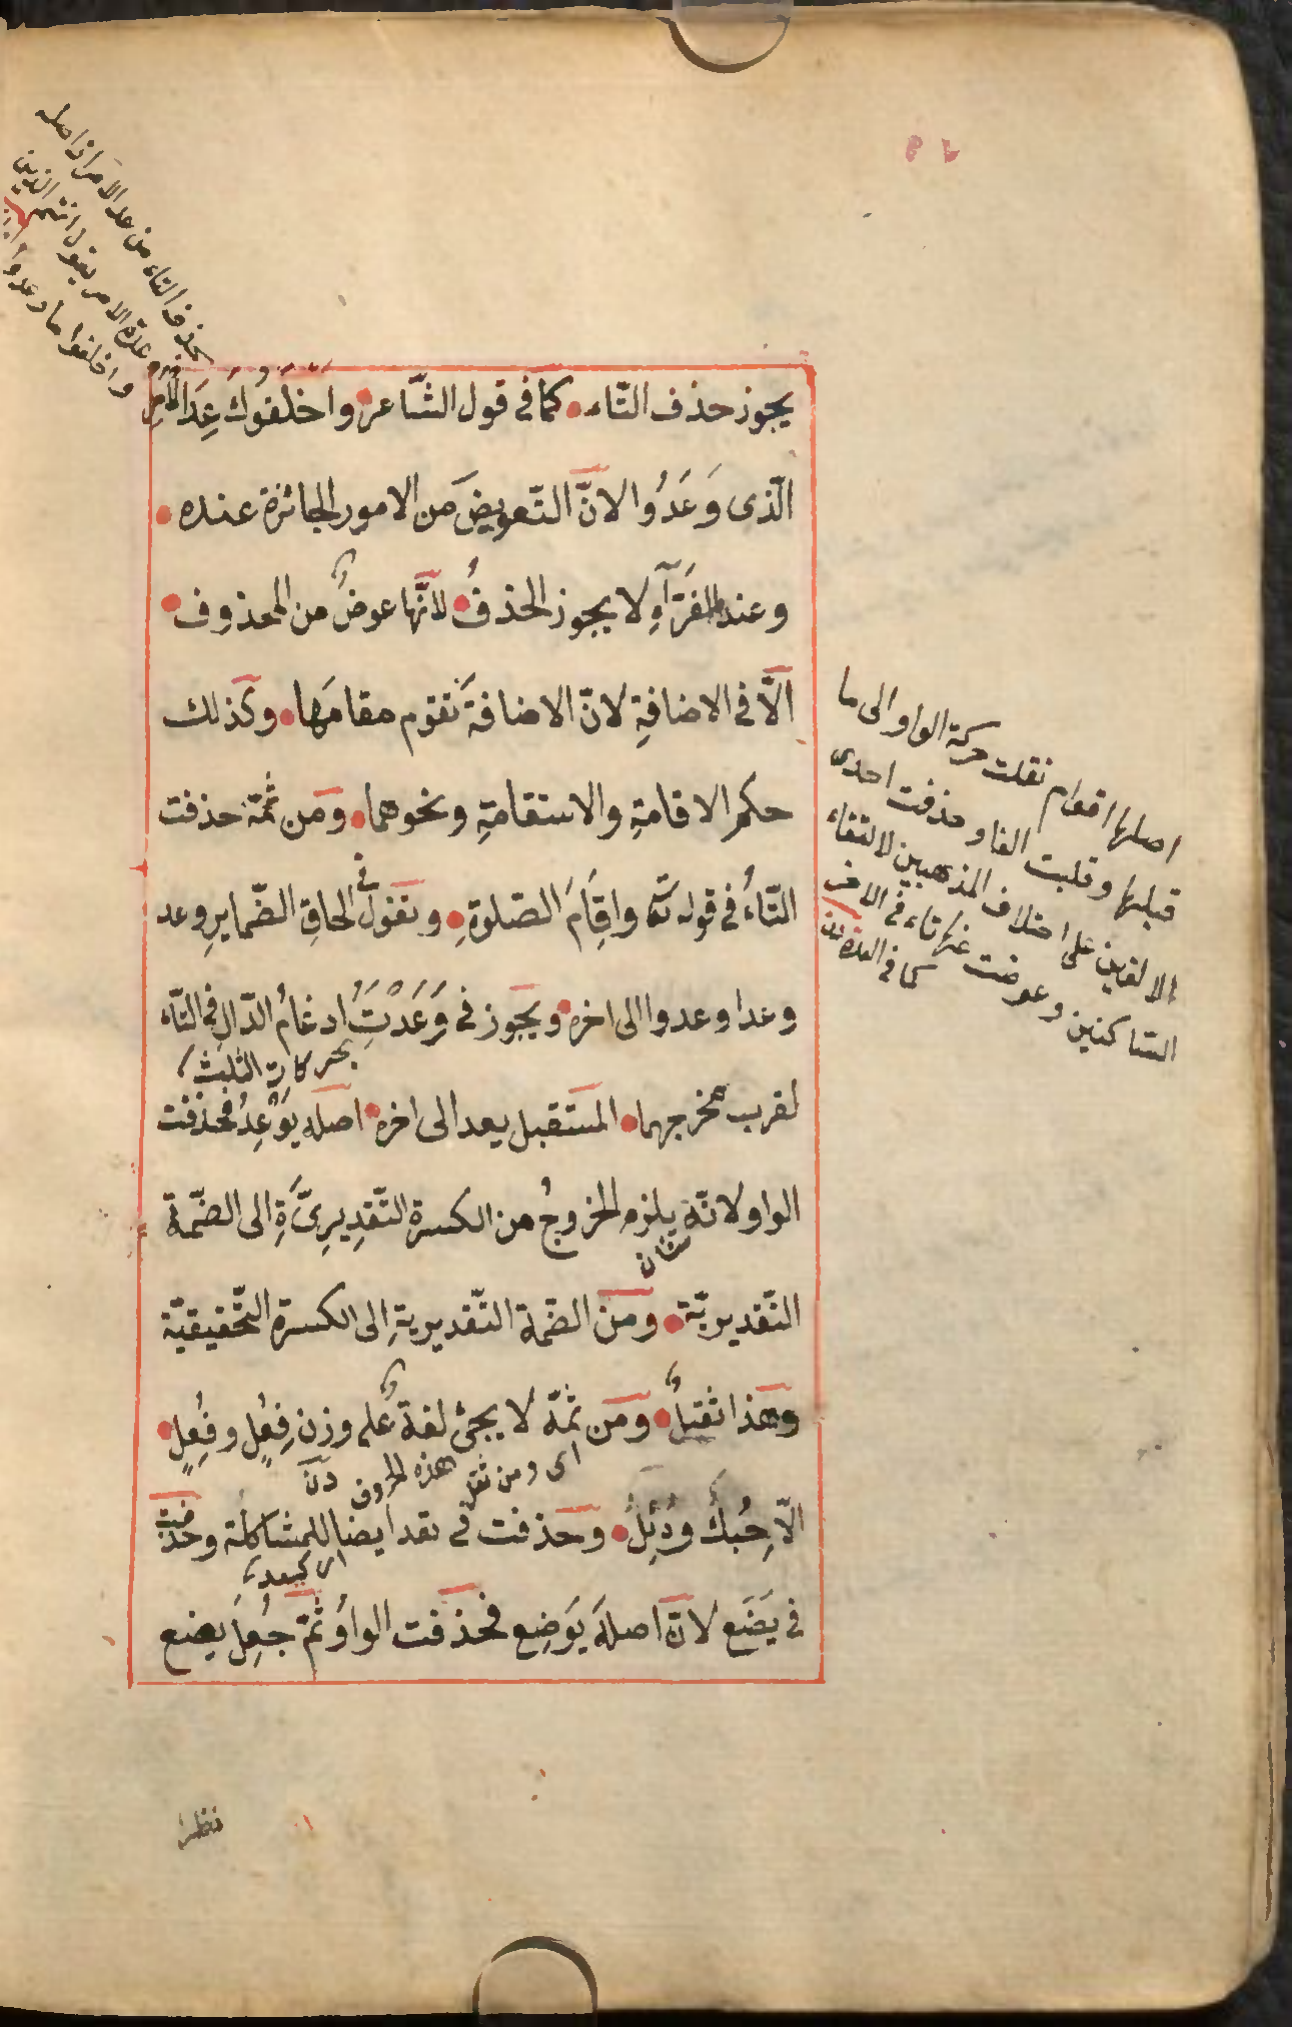 يجوز حذف التّاء كما فى قول الشّاعر وَاَخْلَفُوكَ عِدَ الْاَمْرِ
الّذى وَعَدُوا لانَّ التّعويضَ من الامور الجائزة عنده
وعند الفرّآءِ لا يجوز الحذفُ لأنَّها عوضٌ من المحذوف
الَّا فى الاضافةِ لانّ الاضافةَ تقوم مقامَها وكذلك
حكم الاقامةِ والاستقامةِ ونحوهما ومن ثَمّة حذفت
التّاءُ فى قوله تعٰ واِقَامَ الصّلوةِ وتقول فى الحاقِ الضّمايرِ وعد
وعدا وعدوا الى اخره ويجوز فى وَعَدْتُِ ادغامُ الدّالِ فى التّاء
بحركات الثلث
لقرب مخرجهما المستقبل يعد الى اخره اصله يَوْعِدُ فحذفت
الواو لانّه يلزم الخروجُ من الكسرة التّقديريَّةِ الى الضّمة
التّقديريّة ومن الضّمة التّقديريةِ الى الكسرة التّحقيقيّة
وهذا ثقيلٌ ومن ثمّة لا يجئ لغة على وزن فِعُلٍ وفُعِلٍ
اى ومن ثقل هذه الحروف
الّا حِبُكٌ ودُئِلٌ وحذفت فى تعد ايضا للمشاكلة وحذفت
فى يَضَع لانّ اصلهَ يَوضِع فحذفت الواوُ ثمّ جُعِلَ يضع
اصلها اقوام نقلت حركة الواو الى ما
قبلها وقلبت الفا وحذفت احدى
الالفين على اختلاف المذهبين لالتقاء
الساكنين وعوضت عنها تاء فى الاخر
كما فى العدة
بحذف التاء من عد الامر اذ اصله
عدة الامر يقول
واخلفوا ما وعدوا